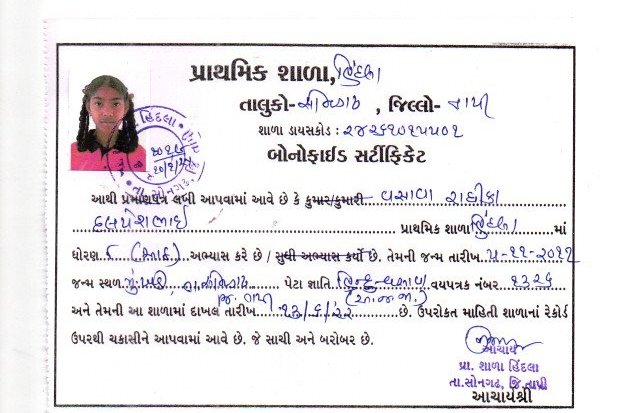 પ્રાથમિક શાળા, હિંદલા
તાલુકો- સોનગઢ , જિલ્લો- તાપી
શાળા ડાયસકોડ : ૨૪૨૬૧૦૧૫૫૦૧
બોનોફાઈડ સર્ટીફિકેટ
આથી પ્રમાણપત્ર લખી આપવામાં આવે છે કે કુમાર/કુમારી વસાવા રાધીકા
કલ્પેશભાઈ પ્રાથમિક શાળા હિંદલા માં
ધોરણ ૮ (આઠ) અભ્યાસ કરે છે / સુધી અભ્યાસ કર્યો છે. તેમની જન્મ તારીખ ૫-૧૧-૨૦૧૧
જન્મ સ્થળ તા. સોનગઢ પેટા જાતિ હિન્દુ વસાવા વયપત્રક નંબર ૧૩૨૬
જિ. તાપી (અ.જ.જા.)
અને તેમની આ શાળામાં દાખલ તારીખ ૧૩/૬/૨૨ છે. ઉપરોક્ત માહિતી શાળાનાં રેકોર્ડ
ઉપરથી ચકાસીને આપવામાં આવે છે. જે સાચી અને બરોબર છે.
આચાર્ય
પ્રા. શાળા હિંદલા
તા.સોનગઢ, જિ.તાપી
આચાર્યશ્રી